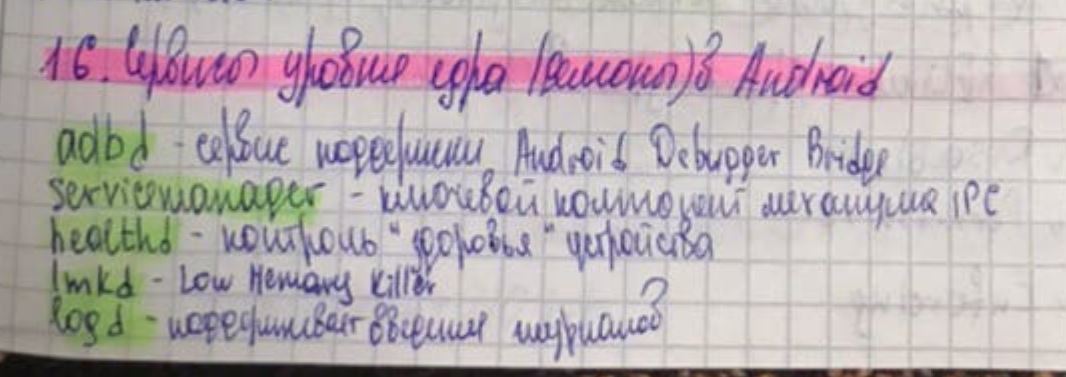 16. Сервисы уровня ядра (демоны) в Android
adbd - сервис поддержки Android Debugger Bridge
servicemanager - ключевой компонент механизма IPC
healthd - контроль "здоровья" устройства
lmkd - Low Memary Killer
logd - поддерживает введение журналов